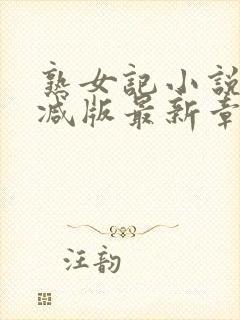 熟女記小說
減版最新章
汪韵